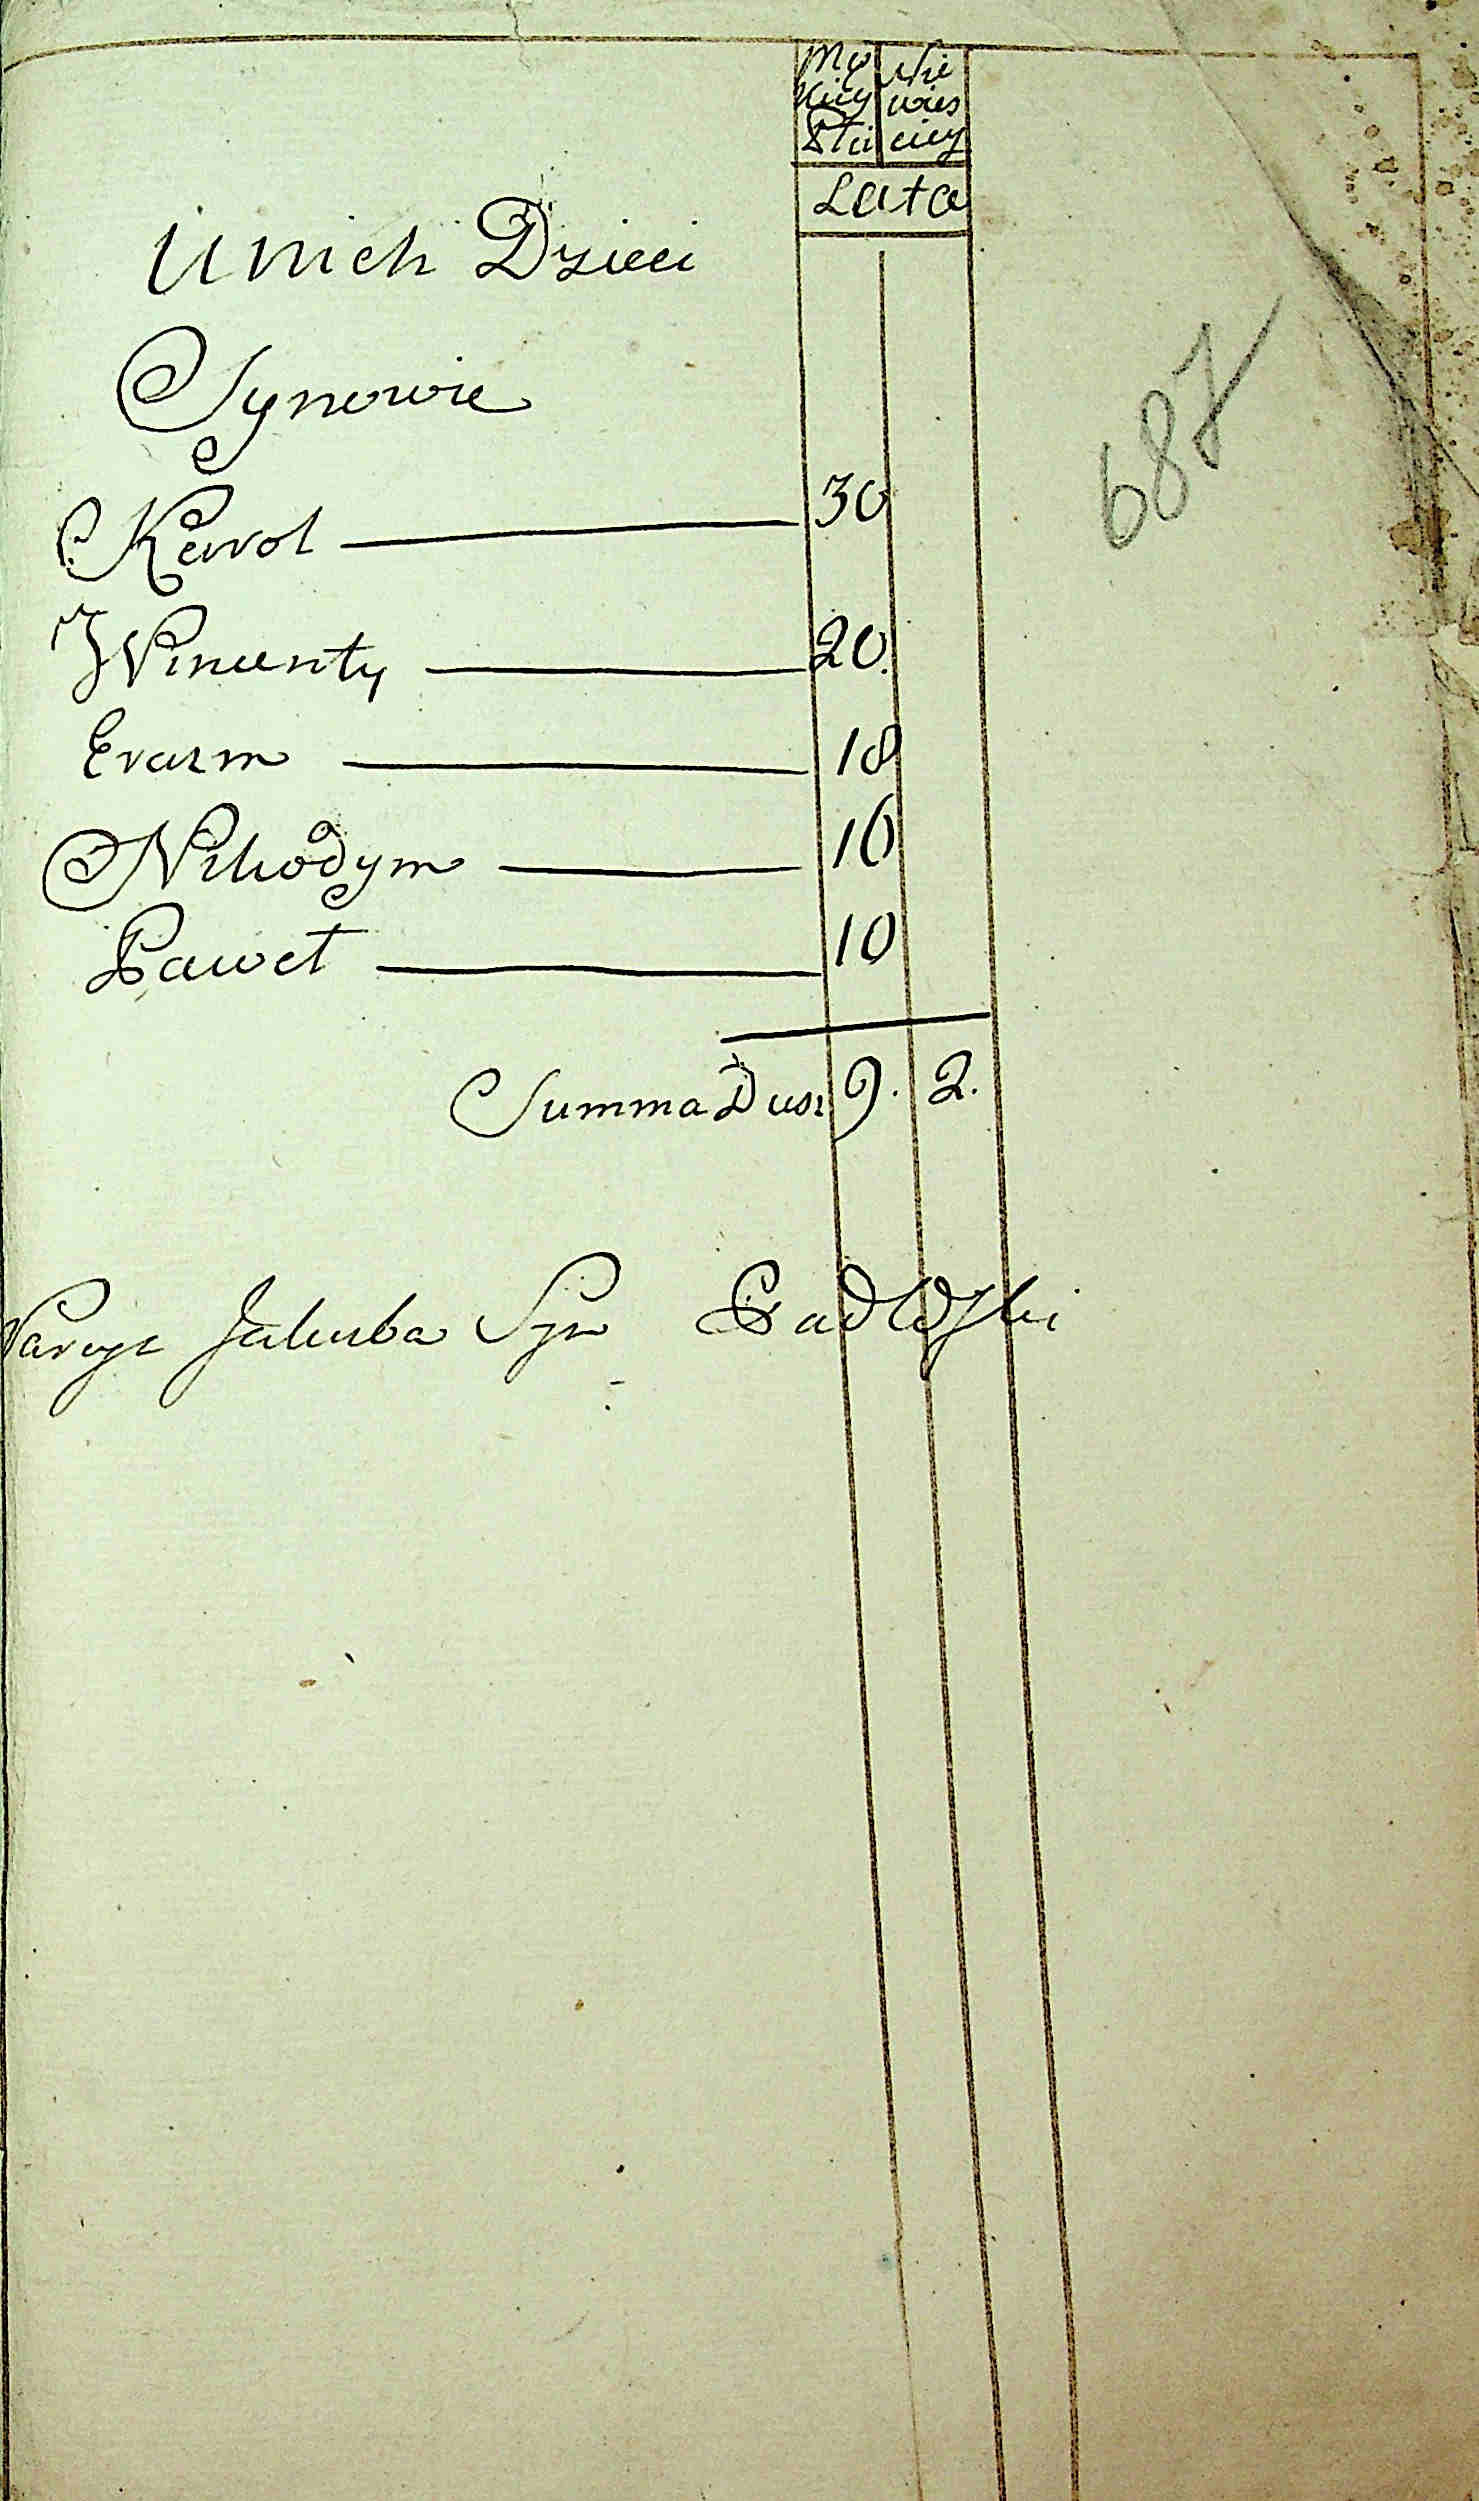 Mę Nie
skiey wies
Płci ciey
Lata
U nich Dzieci
Synowie
Karol 30
Wincenty 20.
Erazm 18
Nikodym 16
Paweł 10
Summa Dusz 9. 2.
Jakuba Syn Padlewski
687